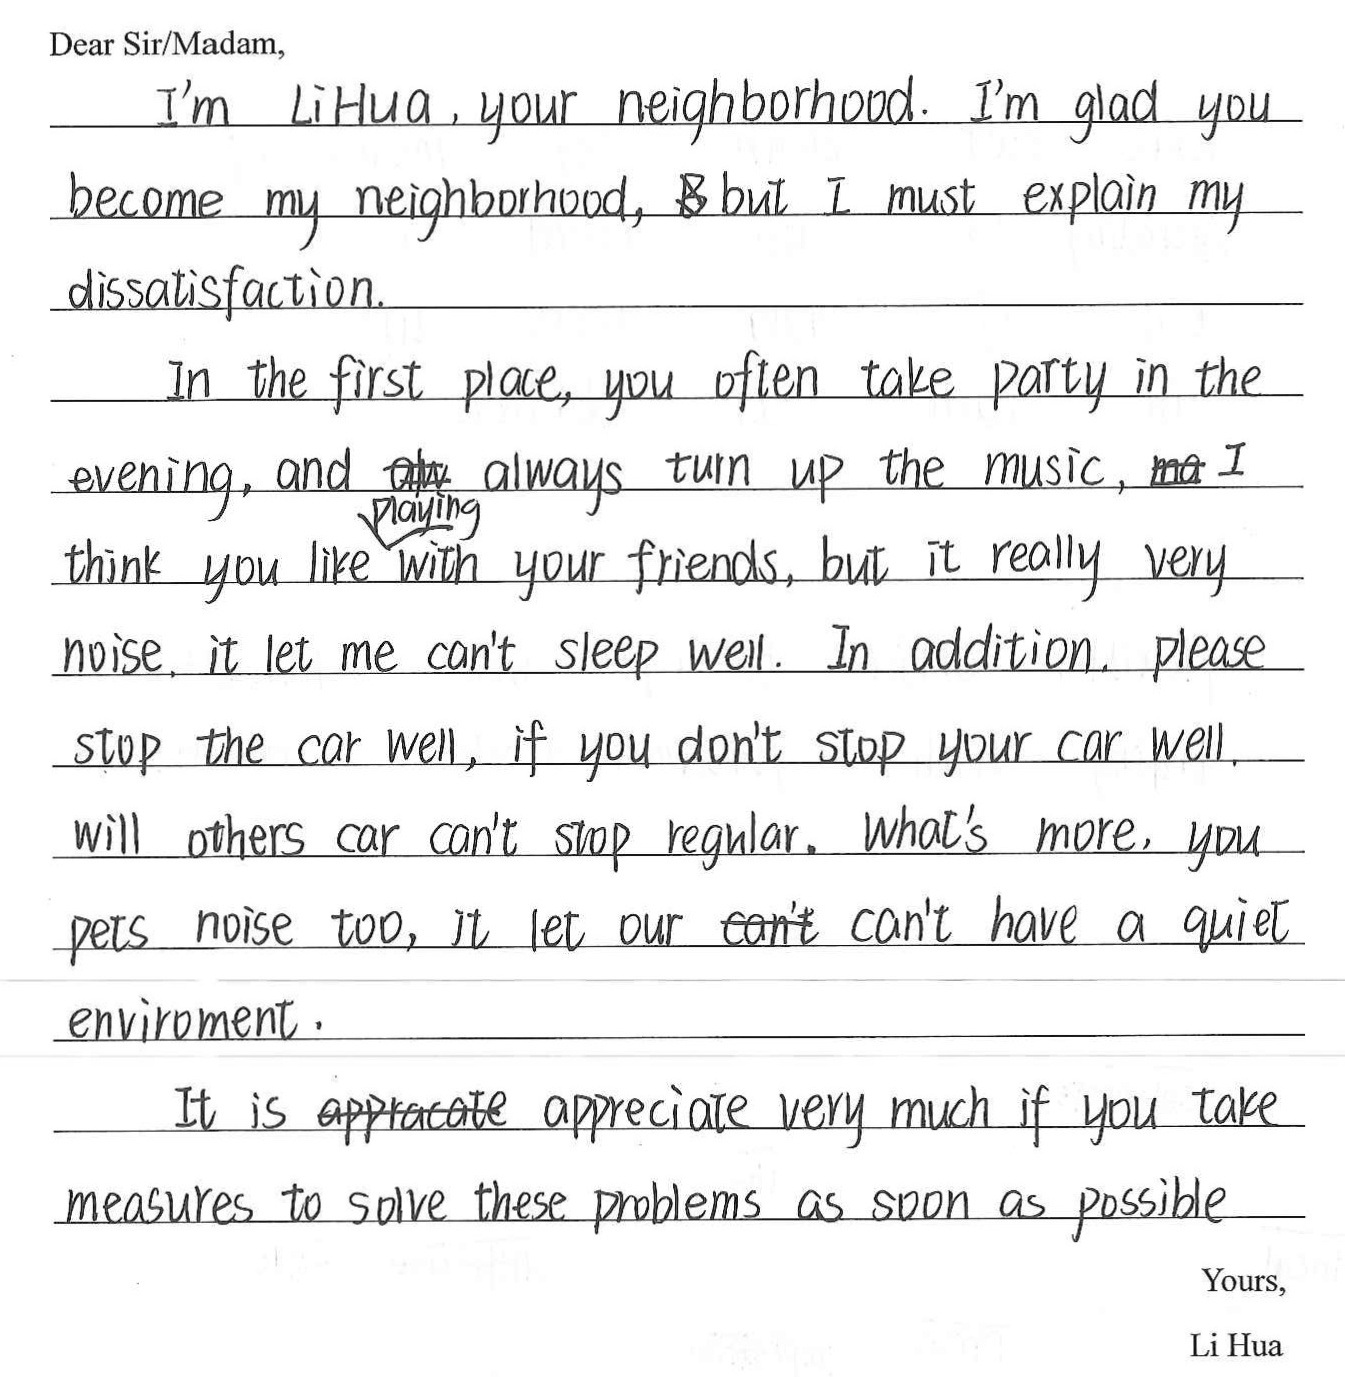 Dear Sir/Madam,
I'm LiHua, your neighborhood. I'm glad you
become my neighborhood, but I must explain my
dissatisfaction.
In the first place, you often take party in the
evening, and always turn up the music, I
playing
think you like with your friends, but it really very
noise, it let me can't sleep well. In addition, please
stop the car well, if you don't stop your car well,
will others car can't stop regular. What's more, you
pets noise too, it let our can't have a quiet
enviroment.
It is appreciate very much if you take
measures to solve these problems as soon as possible
Yours,
Li Hua